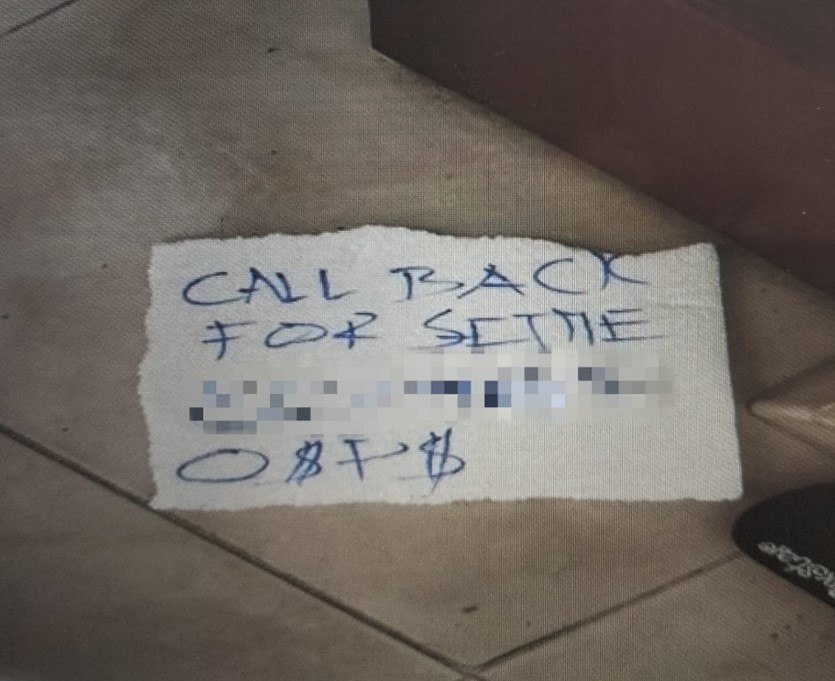 CALL BACK
FOR SETTLE
O$P$